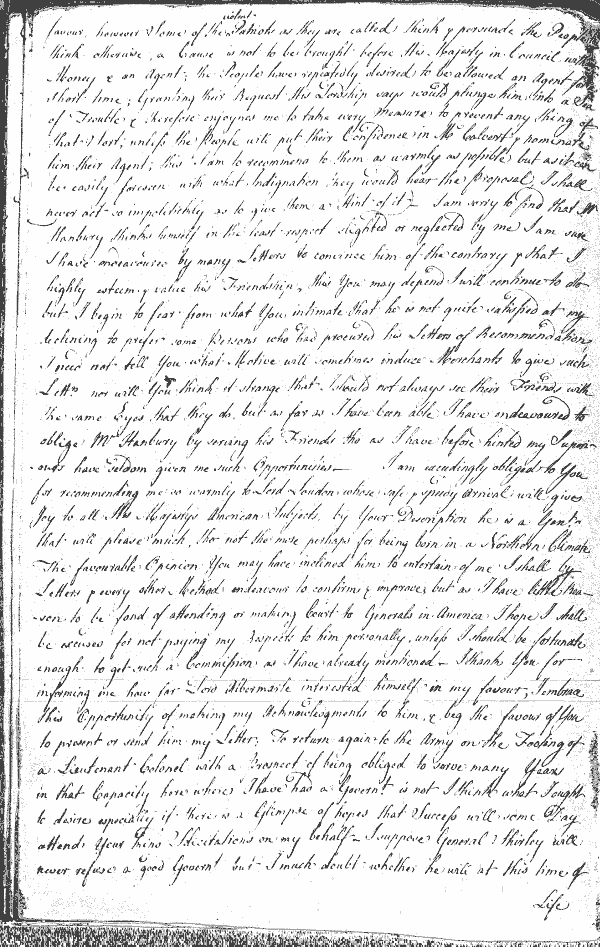 violent
favour, however some of the Patriots as they are called think & persuade the People
think otherwise, a Cause is not to be brought before His Majesty in Council without
Money & an Agent; the People have repeatedly desired to be allowed an Agent for
short time; Granting their Request His Lordship says would plunge him into a Sea
of Trouble & therefore enjoynes me to take every measure to prevent any thing of
that sort, unless the People will put their Confidence in Mr Calvert & nominate
him their Agent; this I am to recommend to them as warmly as possible but as it can
be easily foreseen with what Indignation they would hear the Proposal, I shall
never act so impolitickly as to give them a Hint of it — I am sorry to find that Mr
Hanbury thinks himself in the least respect slighted or neglected by me I am sure
I have endeavoured by many Letters to convince him of the contrary & that I
highly esteem & value his Friendship, this You may depend I will continue to do
but I begin to fear from what You intimate that he is not quite satisfied at my
declining to prefer some Persons who had procured his Letters of Recommendation
I need not tell You what Motive will sometimes induce Merchants to give such
Lettrs nor will You think it strange that I should not always see their Friends with
the same Eyes that they do, but as far as I have been able I have endeavoured to
oblige Mr Hanbury by serving his Friends tho as I have before hinted my Superi-
ours have seldom given me such Opportunities — I am exceedingly obliged to You
for recommending me so warmly to Lord Loudon whose safe & speedy arrival will give
Joy to all His Majestys American Subjects, by Your Description he is a Gent:
that will please much, tho not the more perhaps for being born in a Northern Climate
The favourable Opinion You may have inclined him to entertain of me I shall by
Letters & every other Method endeavour to confirm & improve; but as I have little Rea-
-son to be fond of attending or making Court to Generals in America I hope I shall
be excused for not paying my Respects to him personally, unless I should be fortunate
enough to get such a Commission as I have already mentioned — I thank You for
informing me how far Lord Albermarle interested himself in my favour, I embrace
this Opportunity of making my Acknowledgments to him, & beg the favour of You
to present or send him my Letter; To return again to the Army on the Footing of
a Lieutenant Colonel with a Prospect of being obliged to serve many Years
in that Capacity here where I have had a Governt is not I think what I ought
to desire especially if there is a Glimpse of hopes that Success will some Day
attend Your kind Solicitations on my behalf — I suppose General Shirley will
never refuse a good Governt but I much doubt whether he will at this time of
Life